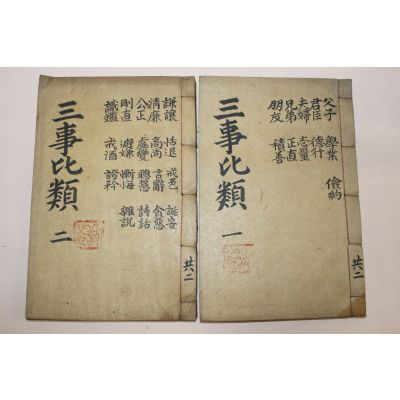 父子 學業 儉約
君臣 德行
夫婦 志量
兄弟 正直
朋友 積善
三事比類 一
共二
謙讓 恬退 戒色 誕妄
清廉 高尚 言辭 貪惡
公正 處變 聰慧 詩話
剛直 避嫌 慚悔 雜說
識鑑 戒酒 誇矜
三事比類 二
共二